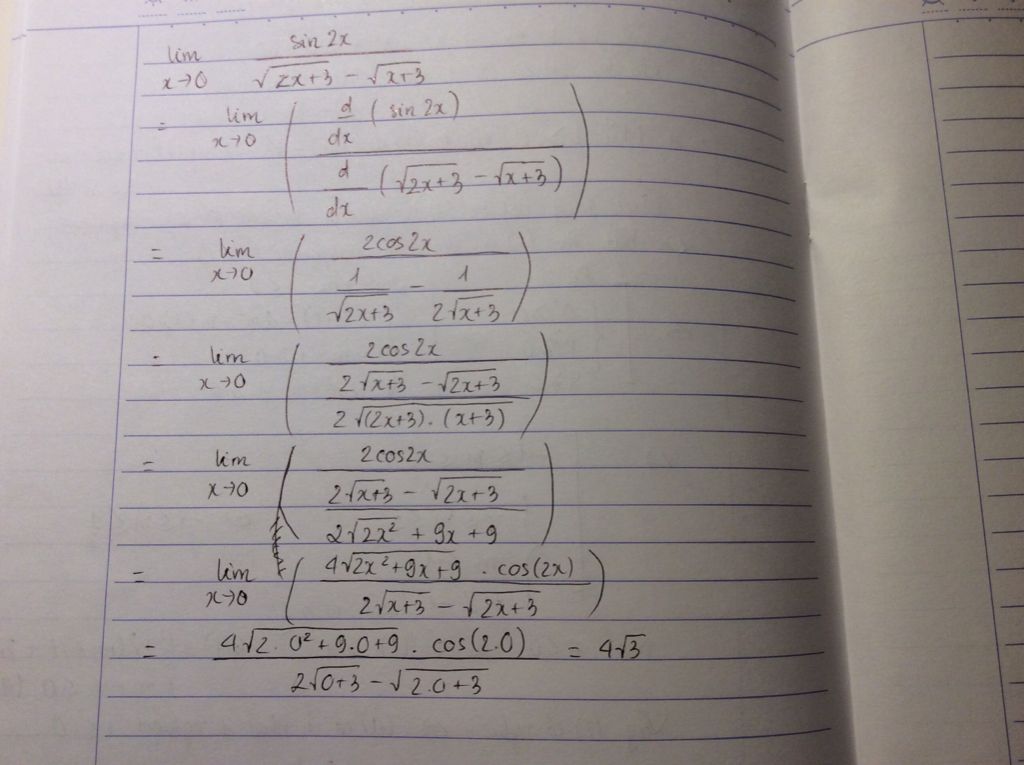 lim x→0 sin 2x / (√(2x+3) − √(x+3))
= lim x→0 ( d/dx (sin 2x) / d/dx (√(2x+3) − √(x+3)) )
= lim x→0 ( 2cos2x / (1/√(2x+3) − 1/(2√(x+3))) )
= lim x→0 ( 2cos2x / ((2√(x+3) − √(2x+3)) / (2√((2x+3).(x+3)))) )
= lim x→0 ( 2cos2x / ((2√(x+3) − √(2x+3)) / (2√(2x²) + 9x + 9)) )
= lim x→0 ( 4√(2x²+9x+9) . cos(2x) / (2√(x+3) − √(2x+3)) )
= 4√(2.0²+9.0+9) . cos(2.0) / (2√(0+3) − √(2.0+3)) = 4√3